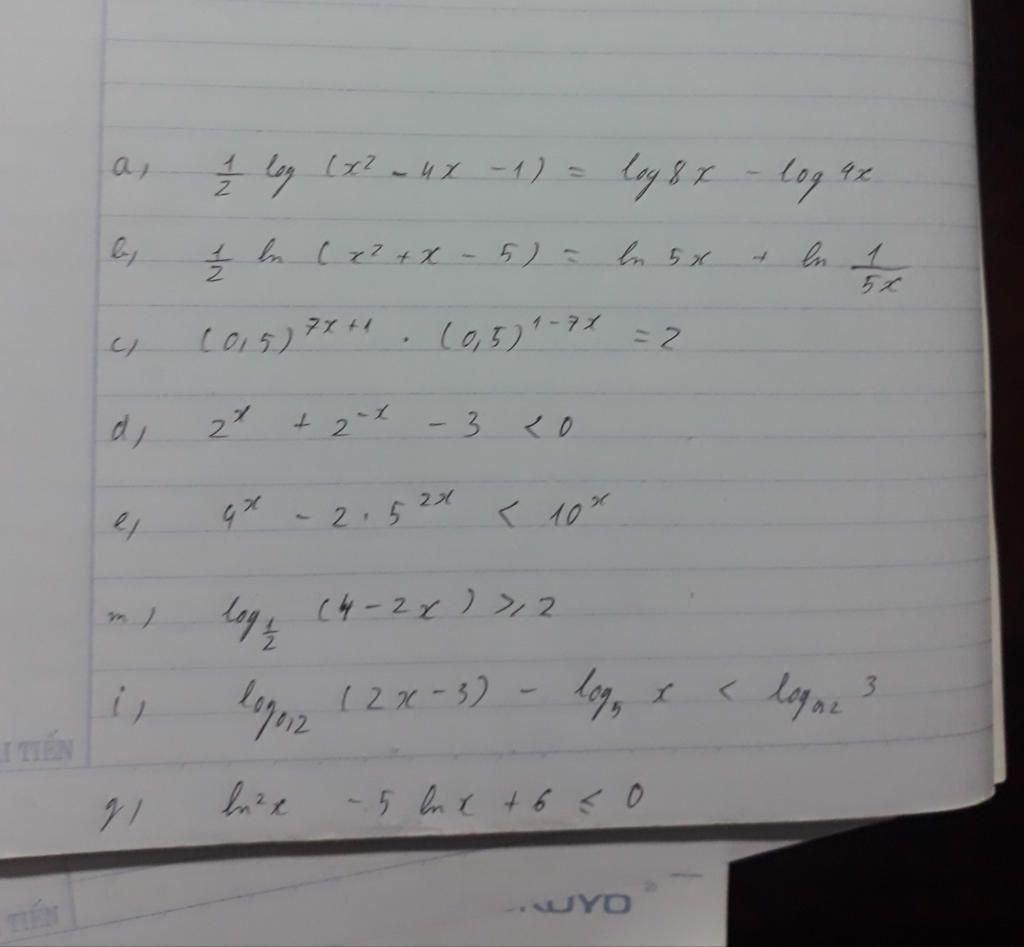 a, 1/2 log (x² - 4x - 1) = log 8x - log 4x
b, 1/2 ln (x² + x - 5) = ln 5x + ln 1/5x
c, (0,5)^{7x+1} . (0,5)^{1-7x} = 2
d, 2^x + 2^{-x} - 3 < 0
e, 4^x - 2 . 5^{2x} < 10^x
m, log_{1/2} (4 - 2x) ≥ 2
i, log_{0,2} (2x - 3) - log_5 x < log_{0,2} 3
g, ln²x - 5 ln x + 6 ≤ 0
TIẾN
TIẾN